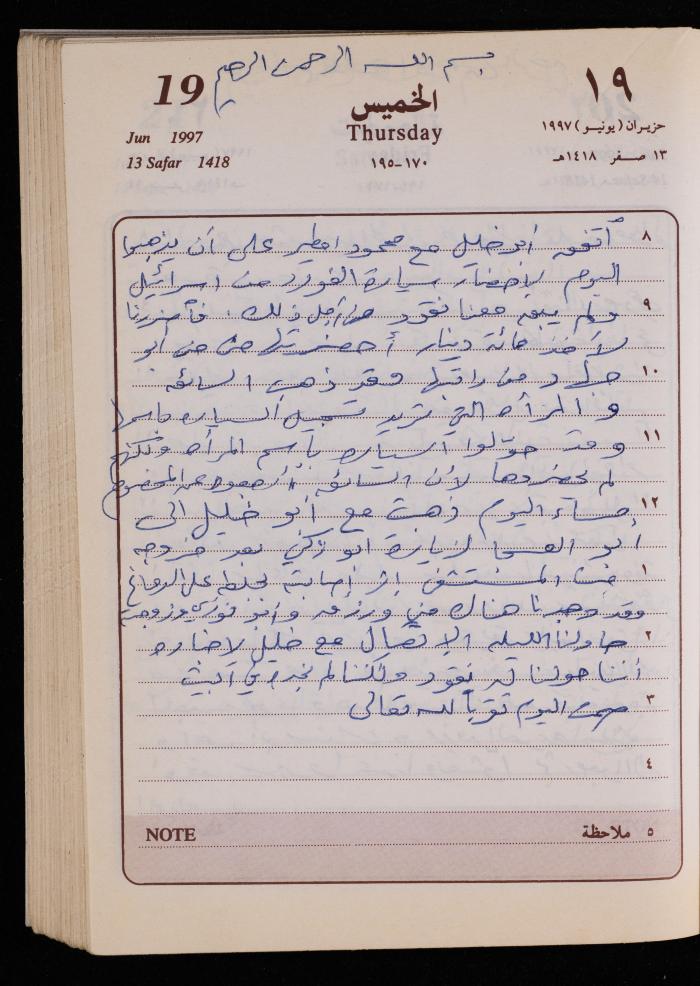 بسم الله الرحمن الرحيم
19 الخميس ١٩
Jun 1997 Thursday حزيران (يونيو) ١٩٩٧
13 Safar 1418 ١٧٠-١٩٥ ١٣ صفر ١٤١٨هـ
٨ أتفق أبو خليل مع محمود على أن يذهبوا
اليوم لإحضار سيارة الفورد من اسرائيل
٩ ولم يبق معنا نقود من أجل ذلك. فأضررنا
لأخذ مائة دينار أحضرتها من أبو
١٠ من راتبها وقد ذهب السائق
والمرأه التي تريد تسجيل السياره باسمها
١١ وقد حوّلوا السياره بأسم المرأه ولكنهم
لم يحضروها لأن السائق
١٢ مساء اليوم ذهبت مع أبو خليل الى
أبو العبد لزيارة ابو زكي بعد خروجه
١ من المستشفى إثر إصابته بجلطه على الدماغ
وقد وجدنا هناك وأبو فوزي وزوجته
٢ حاولنا الليله الاتصال مع خليل لاخباره
أننا حولنا له نقود ولكننا لم نجده في البيت
٣ صمت اليوم تقرباً لله تعالى
٤
NOTE ٥ ملاحظة